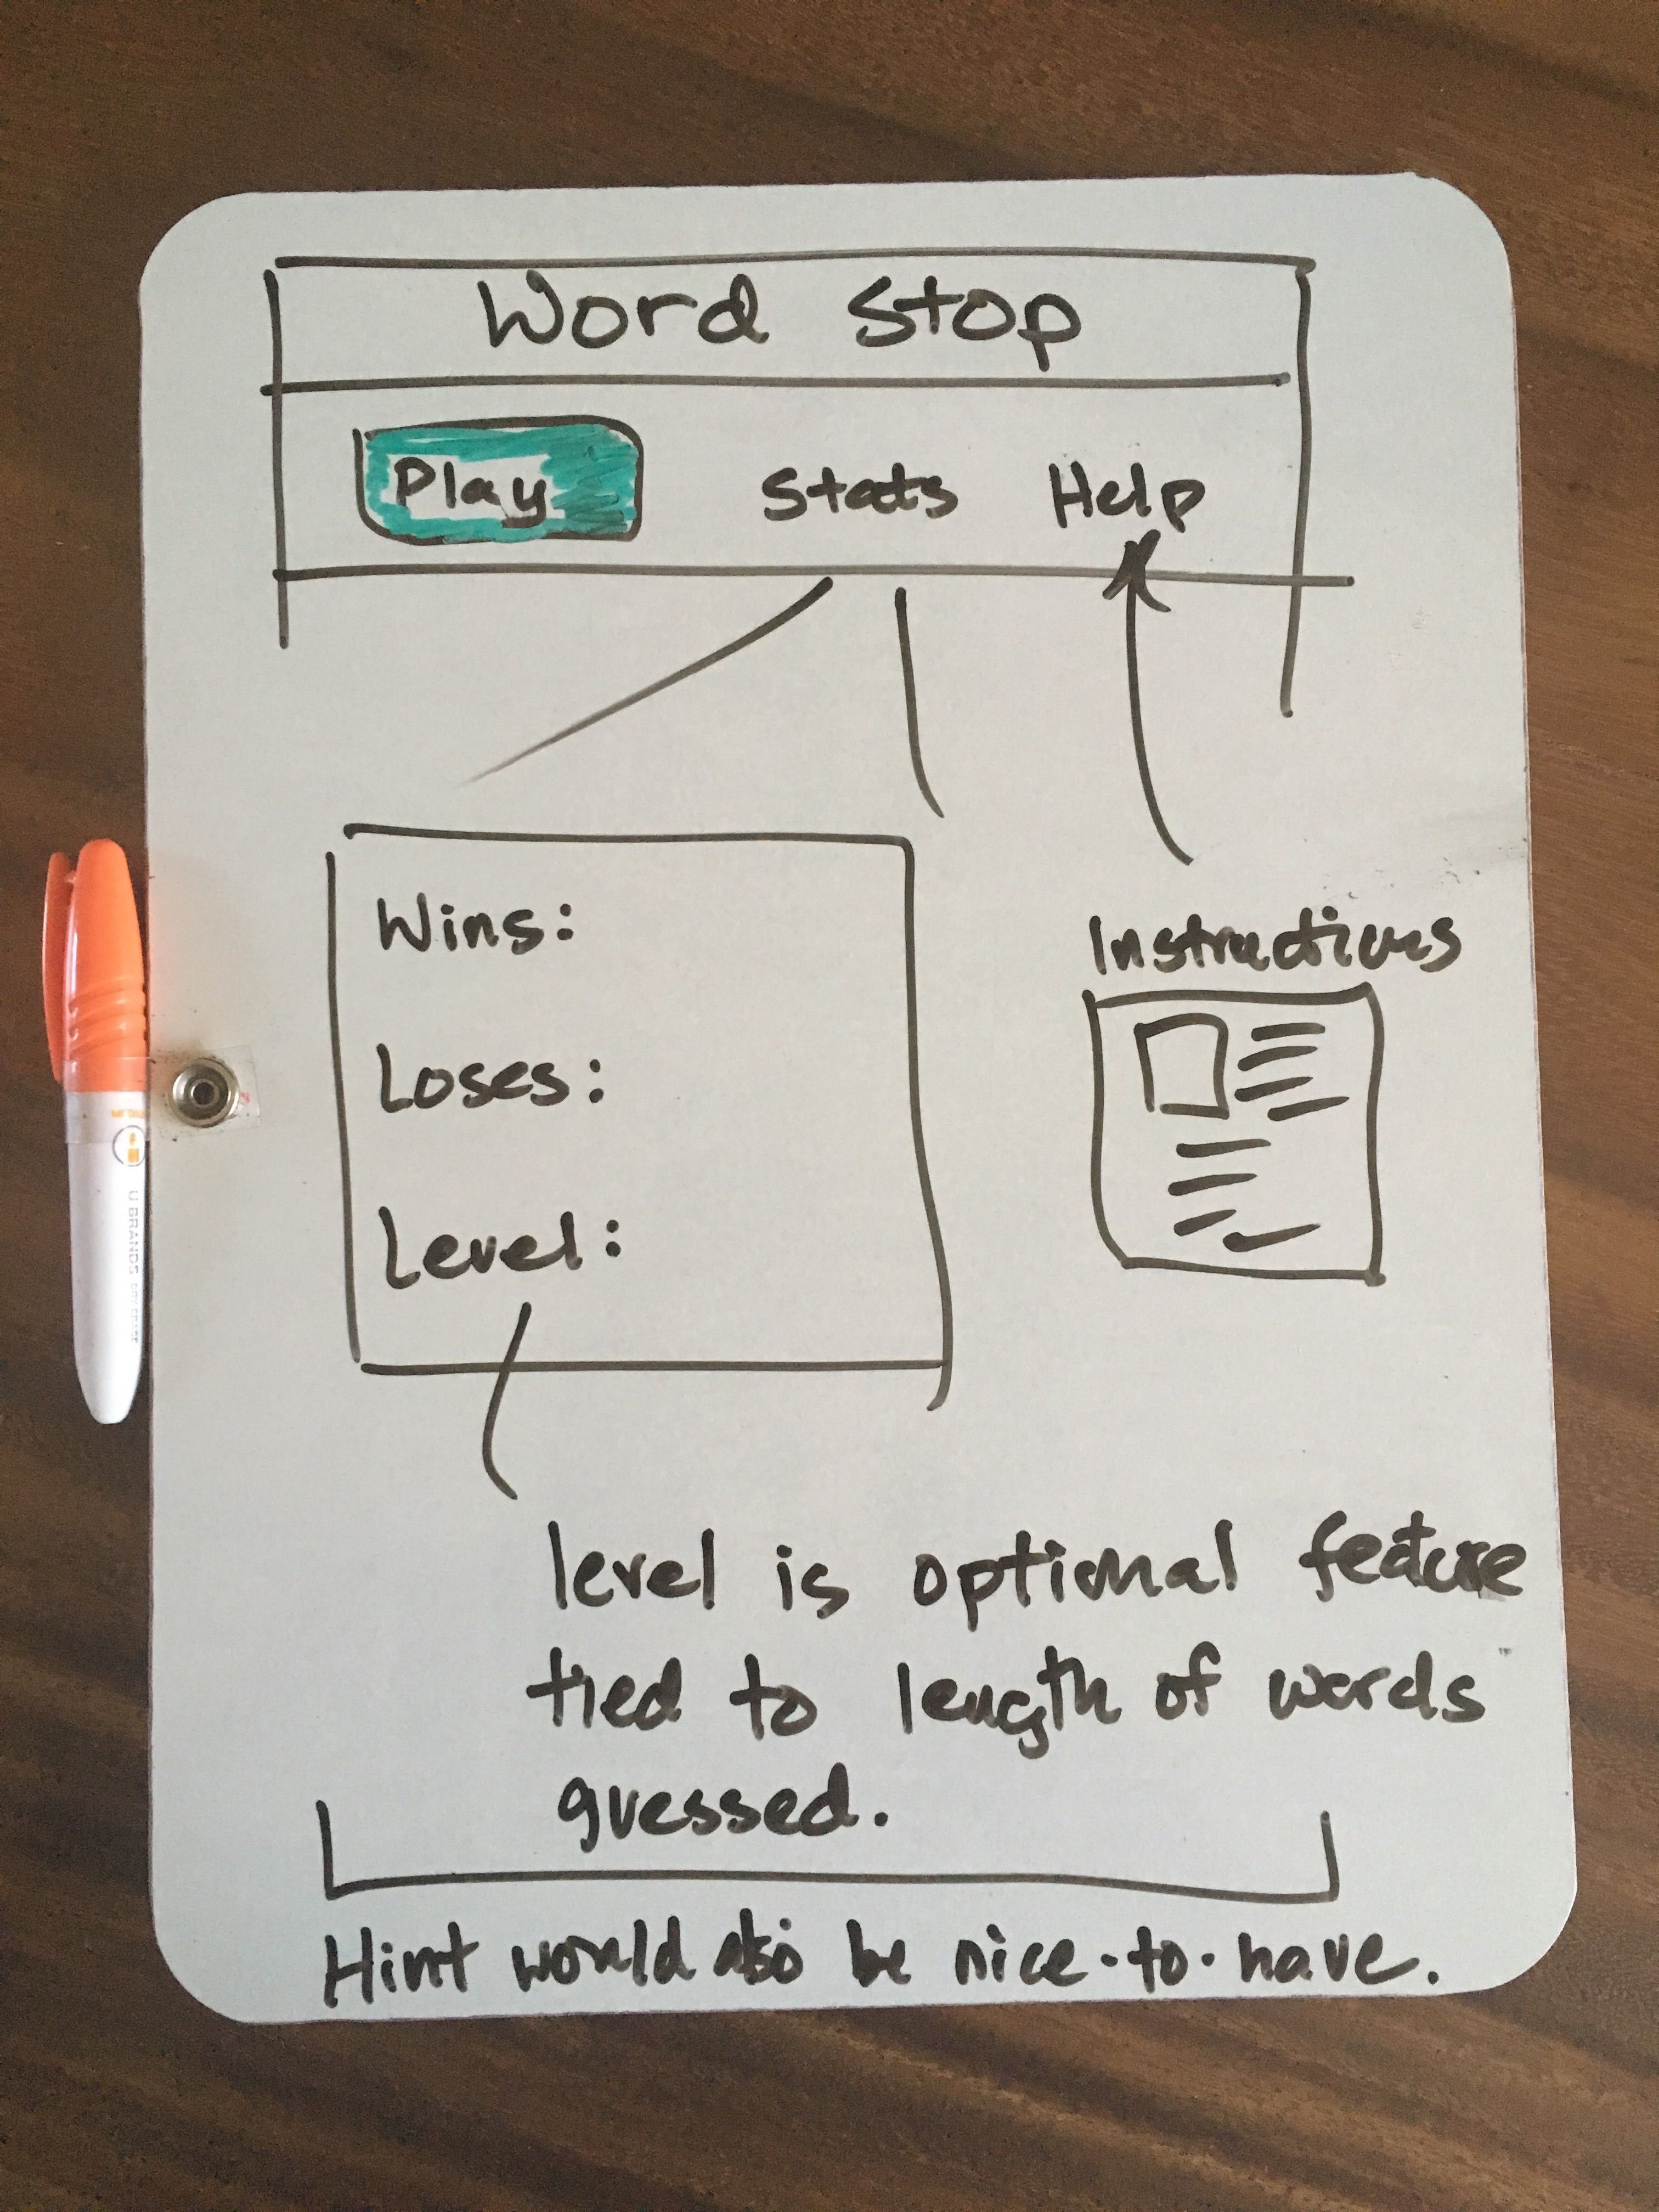 Word Stop
Play Stats Help
Wins:
Loses:
Level:
Instructions
level is optional feature
tied to length of words
guessed.
Hint would also be nice-to-have.
U BRANDS